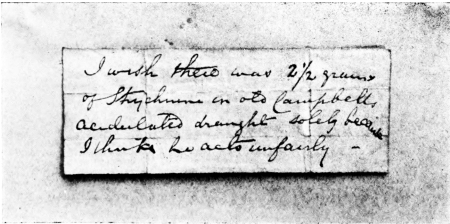 I wish there was 2 1/2 grains
of Strychnine in old Campbells
acidulated draught solely because
I think he acts unfairly -